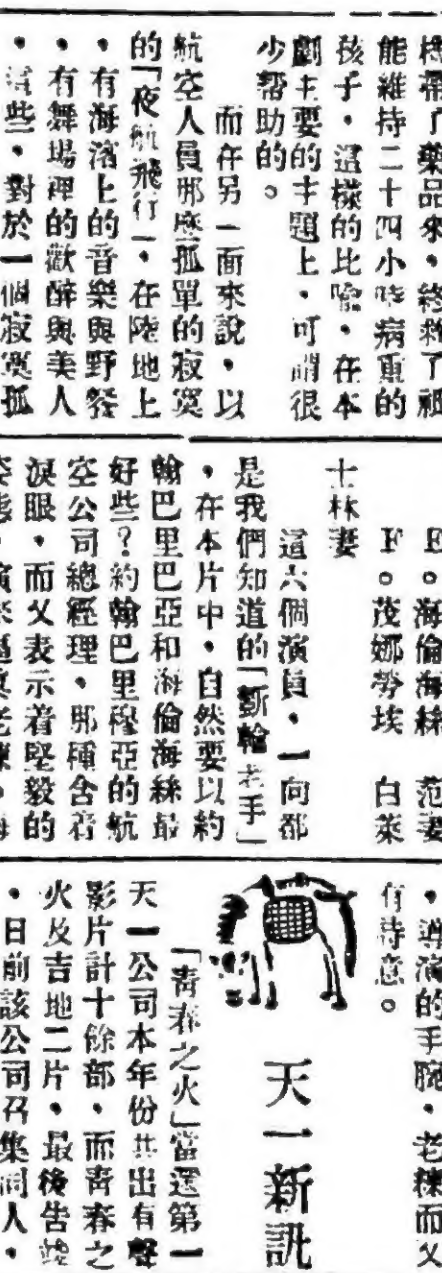 機帶了藥品來，終救了祇
能維持二十四小時病重的
孩子，這樣的比喩，在本
劇主要的主題上，可謂很
少幫助的。
而在另一面來說，以
航空人員那麼孤單的寂寞
的「夜航飛行」，在陸地上
，有海濱上的音樂與野餐
，有舞場裡的歡醉與美人
，這些，對於一個寂寞孤
E。海倫海絲　范妻
F。茂娜勞埃　白萊
士林妻
這六個演員，一向都
是我們知道的「斲輪老手」
，在本片中，自然要以約
翰巴里巴亞和海倫海絲最
好些？約翰巴里穆亞的航
空公司總經理，那種含着
淚眼，而又表示着堅毅的
姿態，演來逼眞老練，海
，導演的手腕，老練而又
有詩意。
天一新訊
「靑春之火」當選第一
天一公司本年份共出有聲
影片計十餘部，而靑春之
火及吉地二片，最後告竣
，日前該公司召集同人，